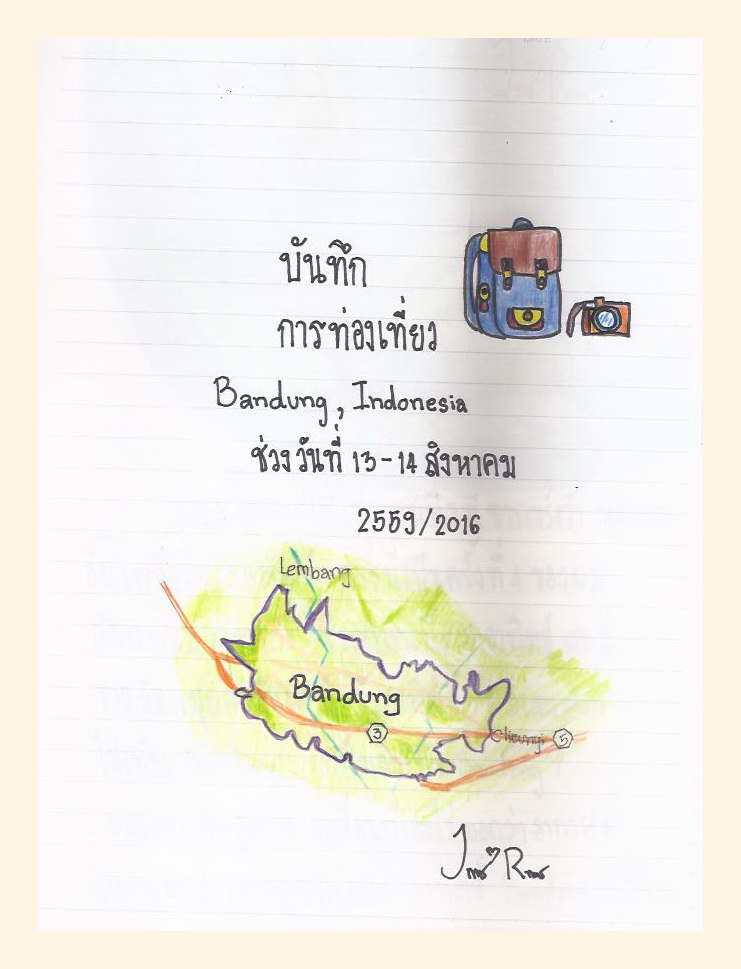 บันทึก
การท่องเที่ยว
Bandung, Indonesia
ช่วงวันที่ 13-14 สิงหาคม
2559/2016
Lembang
Bandung
3
5